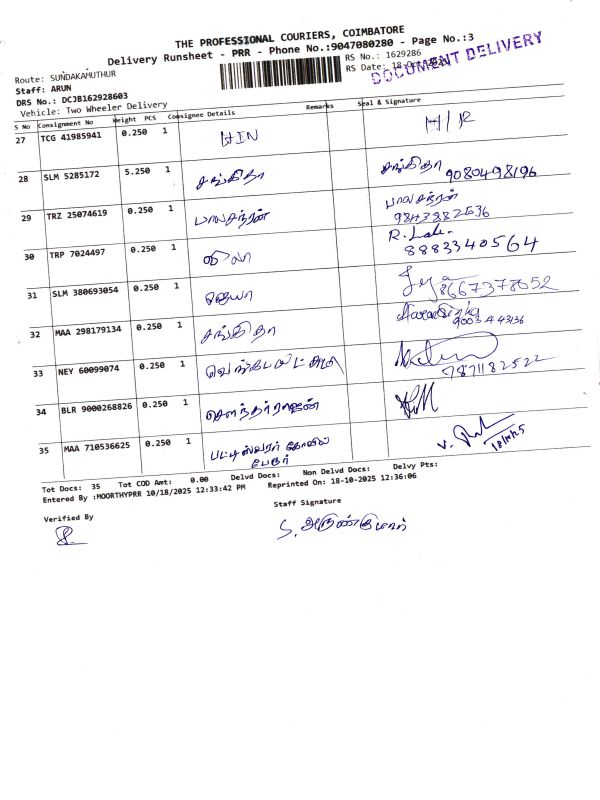 THE PROFESSIONAL COURIERS, COIMBATORE
Delivery Runsheet - PRR - Phone No.:9047080280 - Page No.:3
Route: SUNDAKAMUTHUR
RS No.: 1629286
Staff: ARUN
RS Date: 18-Oct-2025
DOCUMENT DELIVERY
DRS No.: DCJB162928603
Vehicle: Two Wheeler Delivery
S No Consignment No Weight PCS Consignee Details Remarks Seal & Signature
27 TCG 41985941 0.250 1 H/R
28 SLM 5285172 5.250 1 சங்கிதா சங்கிதா 9080498196
29 TRZ 25074619 0.250 1 பாலசந்ரன் பாலசந்ரன் 9843882636
30 TRP 7024497 0.250 1 R. Lala. 8883340564
31 SLM 380693054 0.250 1 ஜெயா Jeya 8667378052
32 MAA 298179134 0.250 1 சங்கிதா
33 NEY 60099074 0.250 1 7871182522
34 BLR 9000268826 0.250 1 சௌந்தர்ராஜன்
35 MAA 710536625 0.250 1 பட்டீஸ்வரர் கோவில் பேரூர் 18/10/25
Tot Docs: 35 Tot COD Amt: 0.00 Delvd Docs: Non Delvd Docs: Delvy Pts:
Entered By :MOORTHYPRR 10/18/2025 12:33:42 PM Reprinted On: 18-10-2025 12:36:06
Verified By
Staff Signature
S. அருண்குமார்